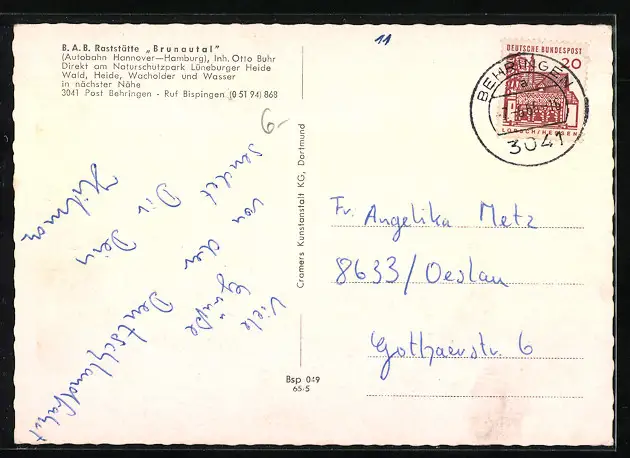 B.A.B. Raststätte „Brunautal"
(Autobahn Hannover—Hamburg), Inh. Otto Buhr
Direkt am Naturschutzpark Lüneburger Heide
Wald, Heide, Wacholder und Wasser
in nächster Nähe
3041 Post Behringen - Ruf Bispingen (0 51 94) 868
11
6.-
Viele
Grüße
von der Deutschlandfahrt
sendet Dir Dein
Hilmar
Cramers Kunstanstalt KG, Dortmund
Bsp 049
65-5
DEUTSCHE BUNDESPOST
20
LORSCH/HESSEN
BEHRINGEN
a
3041
Fr. Angelika Metz
8633/Oeslau
Gothaerstr. 6